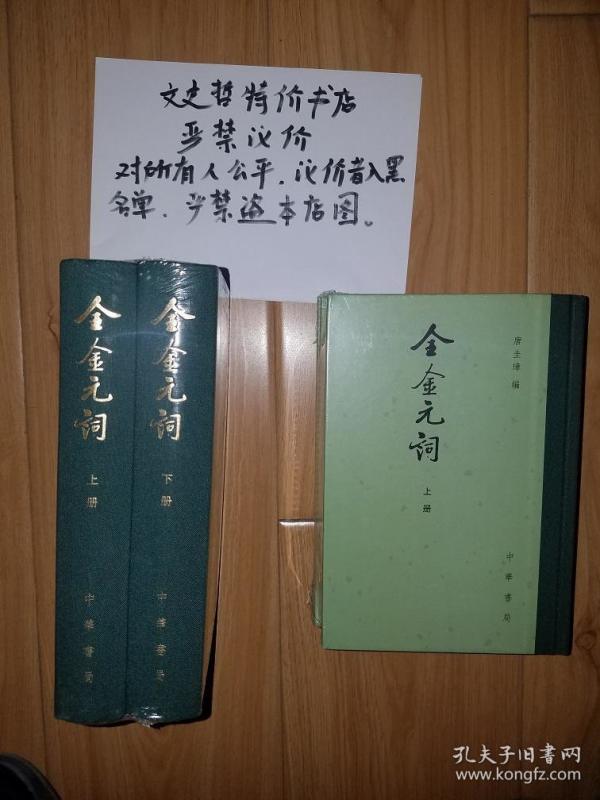 文史哲特价书店
严禁议价
对所有人公平、议价者入黑
名单、严禁盗本店图。
全金元词
上册
中华书局
全金元词
下册
中华书局
全金元词
上册
唐圭璋编
中华书局
孔夫子旧书网
www.kongfz.com